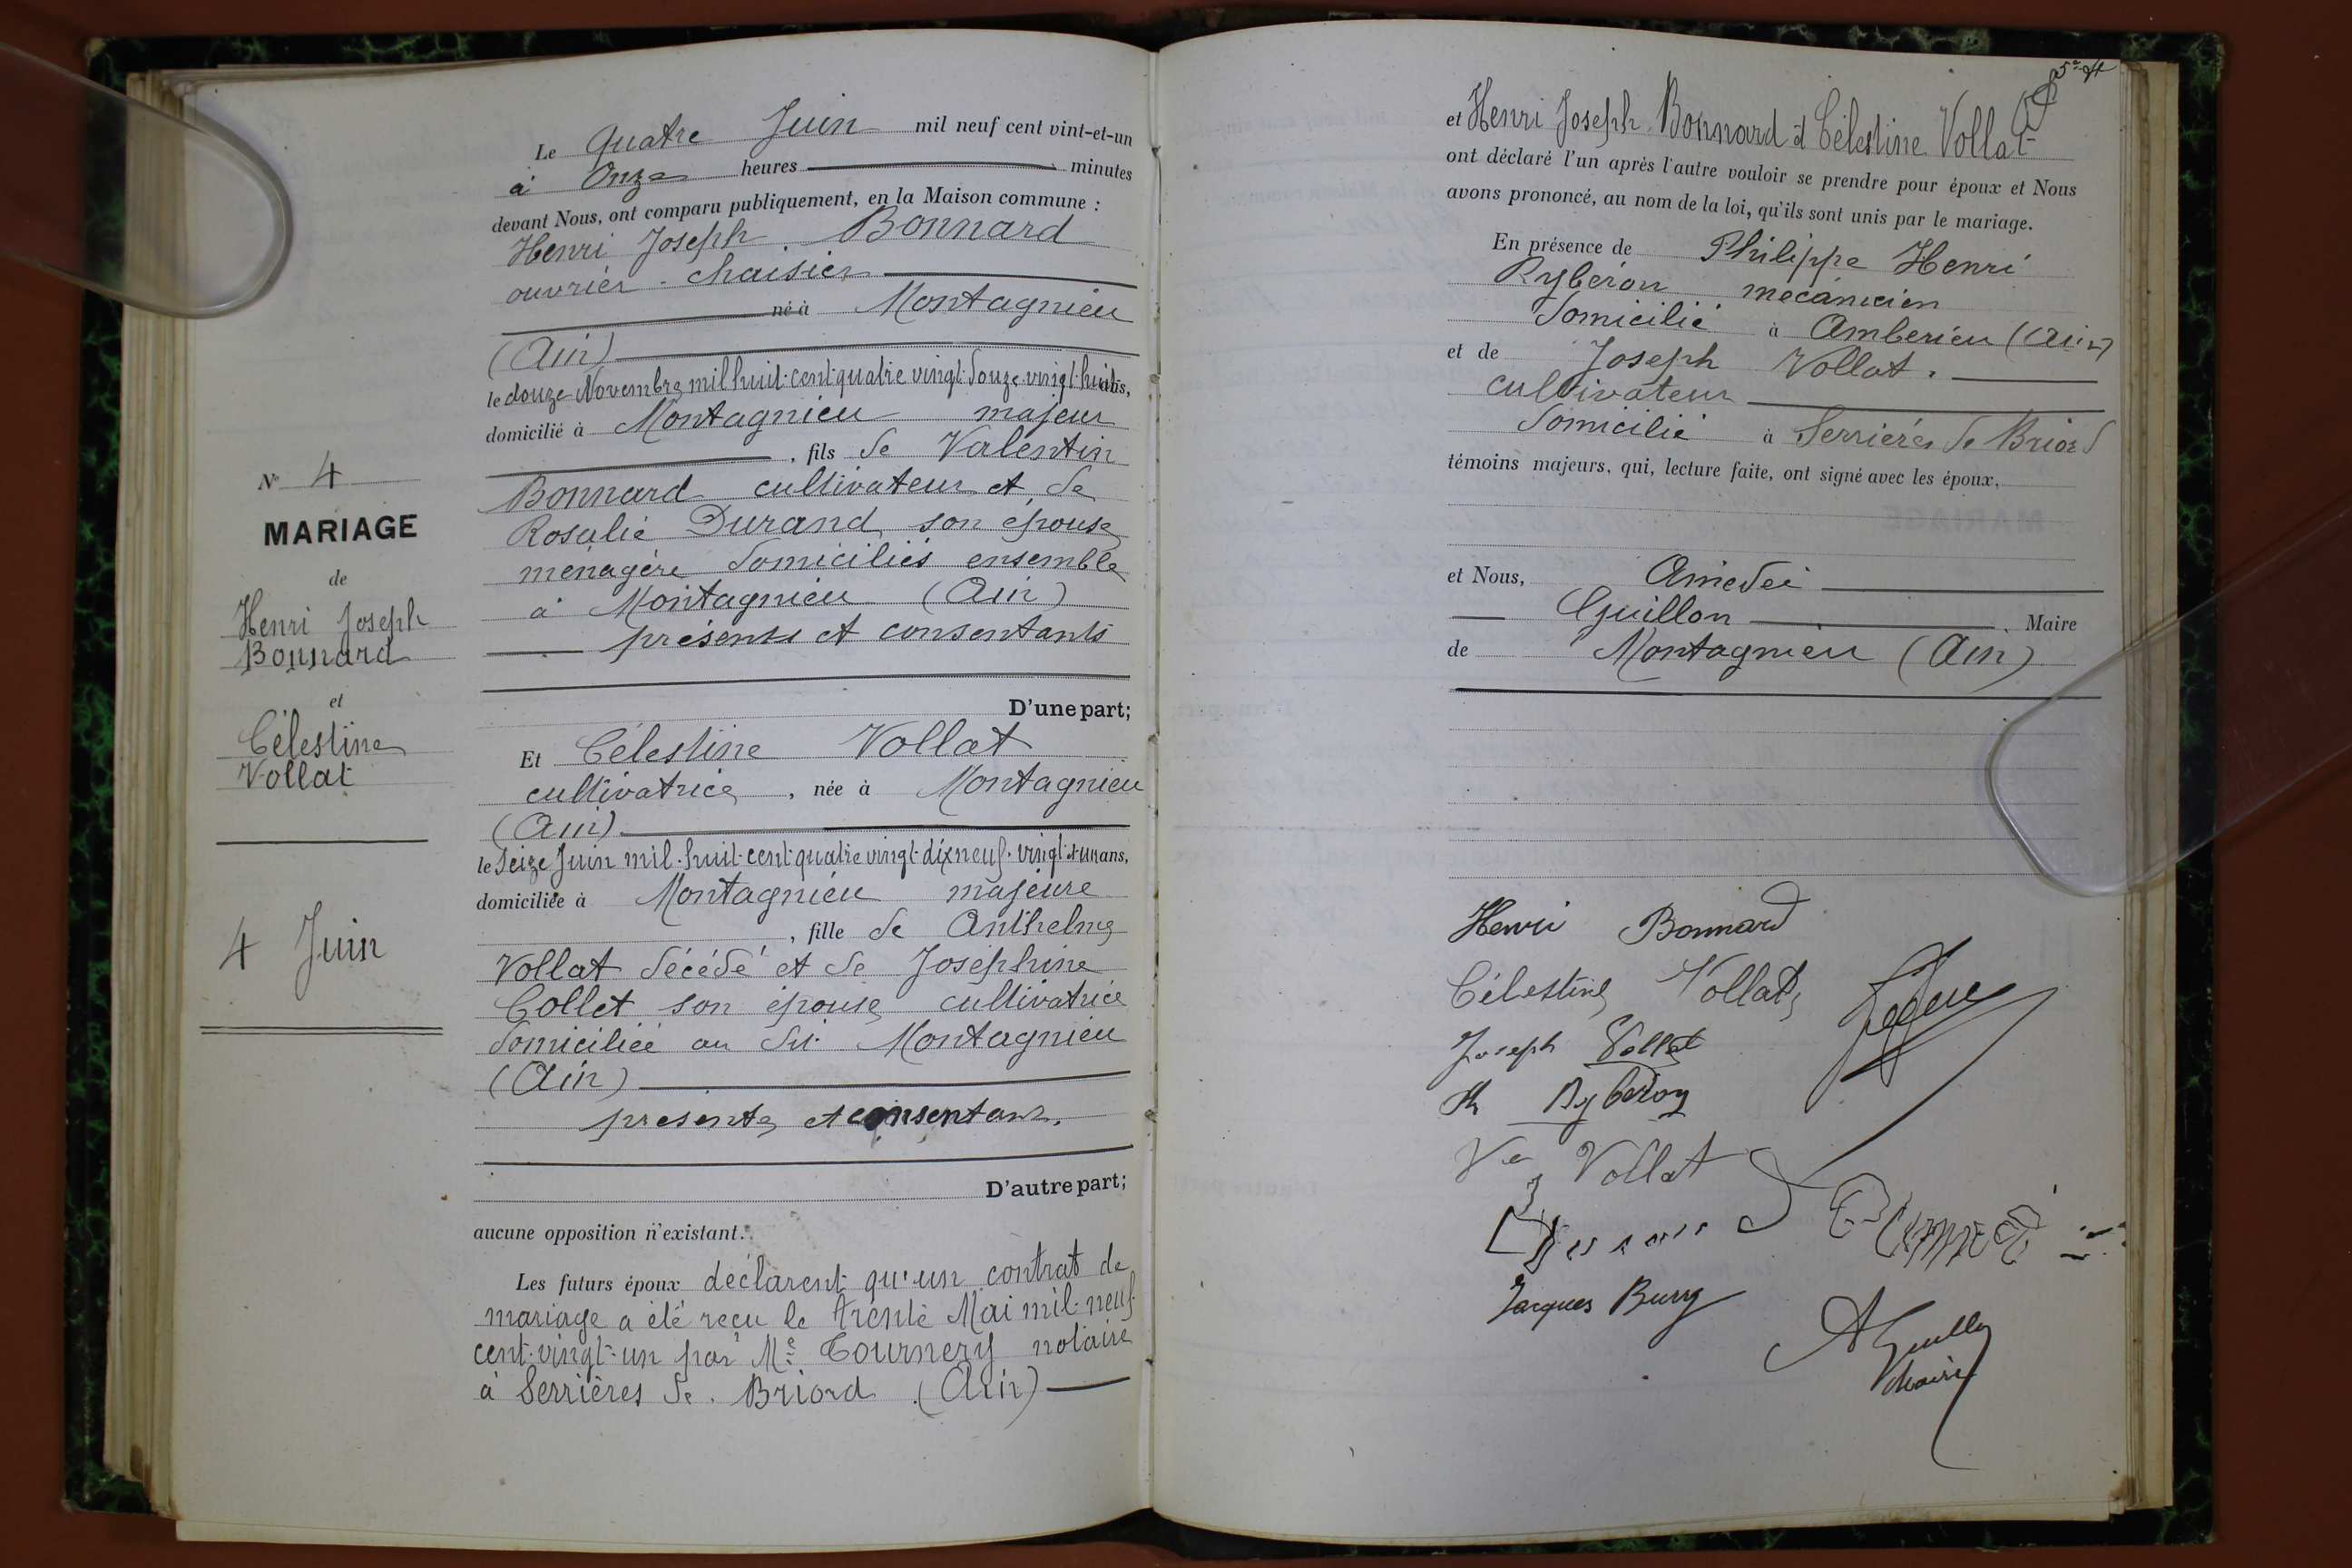 N° 4
MARIAGE
de
Henri Joseph
Bonnard
et
Célestine
Vollat
4 Juin
Le quatre Juin mil neuf cent vint-et-un
à Onze heures minutes
devant Nous, ont comparu publiquement, en la Maison commune :
Henri Joseph Bonnard
ouvrier - chaisier
né à Montagnieu
(Ain)
le douze Novembre mil huit cent quatre vingt douze vingt huit ans,
domicilié à Montagnieu majeur
, fils de Valentin
Bonnard cultivateur et de
Rosalie Durand son épouse
ménagère domiciliés ensemble
à Montagnieu (Ain)
présents et consentants
D'une part;
Et Célestine Vollat
cultivatrice, née à Montagnieu
(Ain)
le seize Juin mil huit cent quatre vingt dix neuf vingt et un ans,
domiciliée à Montagnieu majeure
, fille de Anthelme
Vollat décédé et de Joséphine
Collet son épouse cultivatrice
domiciliée au dit Montagnieu
(Ain)
présente et consentant.
D'autre part;
aucune opposition n'existant.
Les futurs époux déclarent qu'un contrat de
mariage a été reçu le trente Mai mil neuf
cent vingt-un par Me Tournery notaire
à Serrières de Briord (Ain)
et Henri Joseph Bonnard et Célestine Vollat
ont déclaré l'un après l'autre vouloir se prendre pour époux et Nous
avons prononcé, au nom de la loi, qu'ils sont unis par le mariage.
En présence de Philippe Henri
Rybéron mécanicien
domicilié à Amberieu (Ain)
et de Joseph Vollat.
cultivateur
domicilié à Serrières de Briord
témoins majeurs, qui, lecture faite, ont signé avec les époux.
et Nous, Amédéé
Guillon, Maire
de Montagnieu (Ain)
Henri Bonnard
Célestine Vollat
Joseph Vollat
Ph Rybéron
Ve Vollat
Jacques Buny
A Guillon
Maire